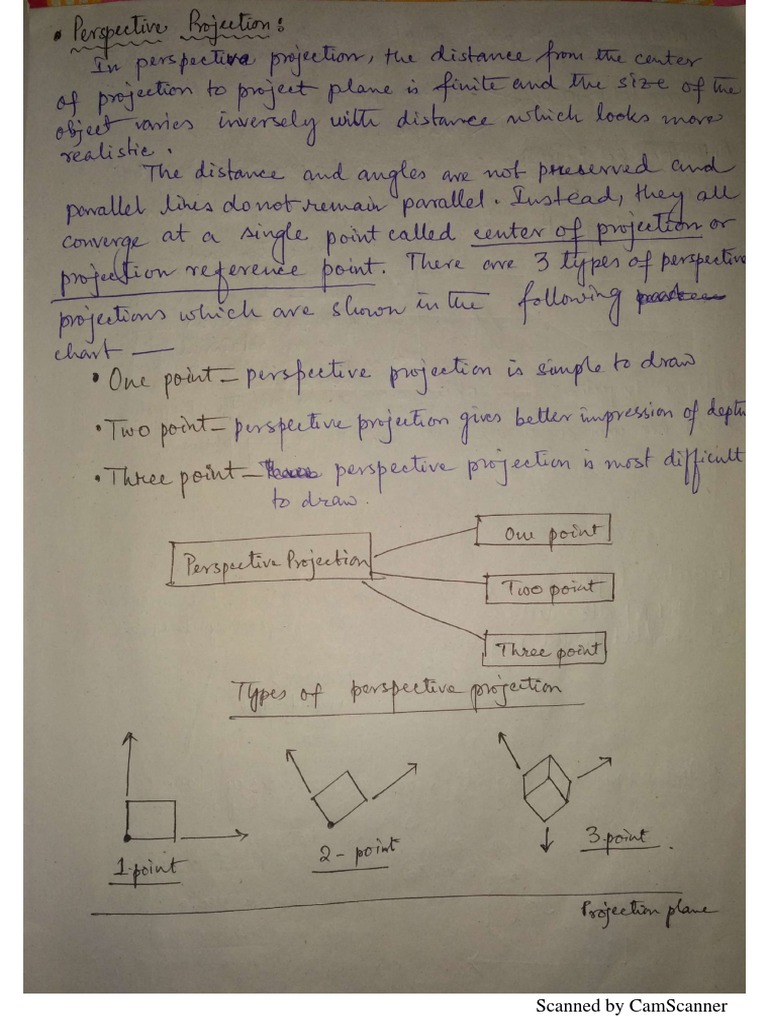 • Perspective Projection:
In perspective projection, the distance from the center
of projection to project plane is finite and the size of the
object varies inversely with distance which looks more
realistic.
The distance and angles are not preserved and
parallel lines do not remain parallel. Instead, they all
converge at a single point called center of projection or
projection reference point. There are 3 types of perspective
projections which are shown in the following
chart —
• One point – perspective projection is simple to draw
• Two point – perspective projection gives better impression of depth
• Three point – perspective projection is most difficult
to draw.
Perspective Projection
One point
Two point
Three point
Types of perspective projection
1-point
2-point
3-point.
Projection plane
Scanned by CamScanner